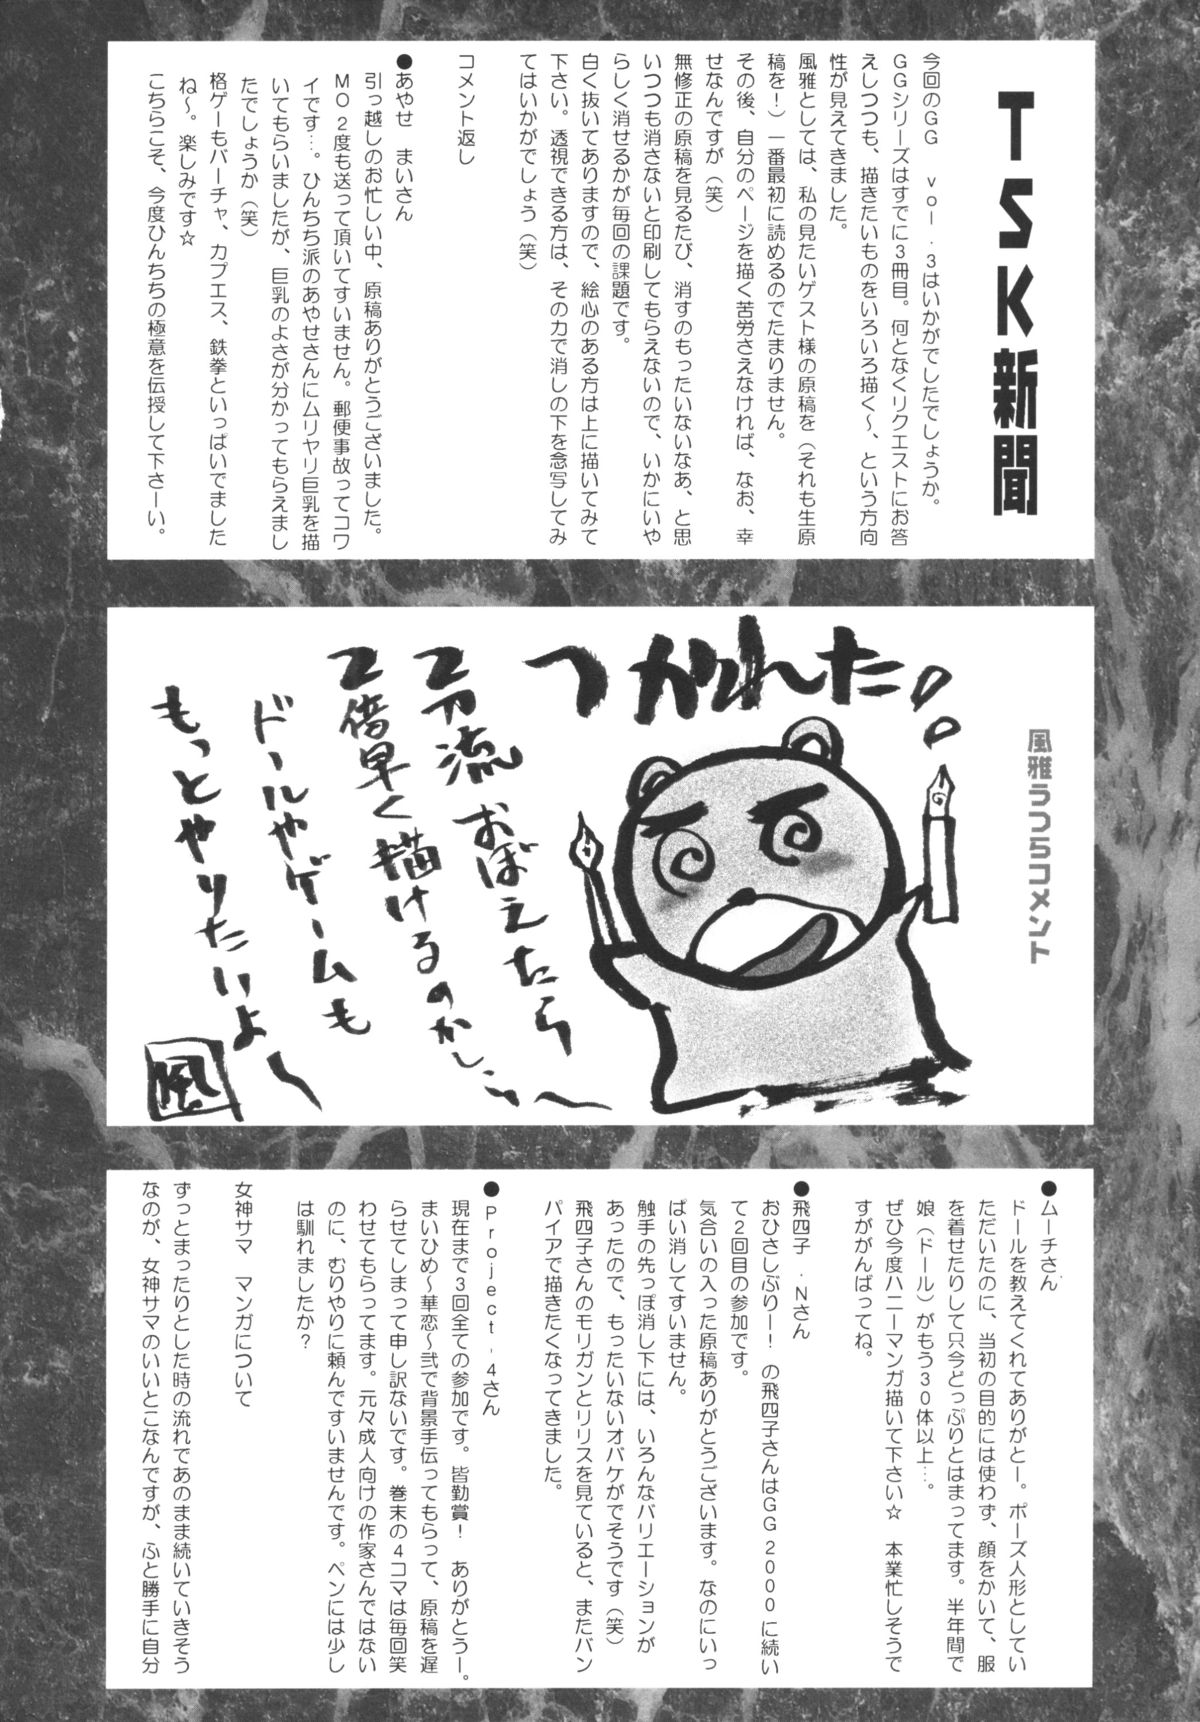 TSK新聞
今回のGG vol.3はいかがでしたでしょうか。
GGシリーズはすでに3冊目。何となくリクエストにお答
えしつつも、描きたいものをいろいろ描く～、という方向
性が見えてきました。
風雅としては、私の見たいゲスト様の原稿を（それも生原
稿を！）一番最初に読めるのでたまりません。
その後、自分のページを描く苦労さえなければ、なお、幸
せなんですが（笑）
無修正の原稿を見るたび、消すのもったいないなあ、と思
いつつも消さないと印刷してもらえないので、いかにいや
らしく消せるかが毎回の課題です。
白く抜いてありますので、絵心のある方は上に描いてみて
下さい。透視できる方は、その力で消しの下を念写してみ
てはいかがでしょう（笑）
コメント返し
●あやせ まいさん
引っ越しのお忙しい中、原稿ありがとうございました。
MO2度も送って頂いてすいません。郵便事故ってコワ
イです…。ひんちち派のあやせさんにムリヤリ巨乳を描
いてもらいましたが、巨乳のよさが分かってもらえまし
たでしょうか（笑）
格ゲーもバーチャ、カプエス、鉄拳といっぱいでました
ね～。楽しみです☆
こちらこそ、今度ひんちちの極意を伝授して下さーい。
風雅うつらコメント
つかれた。
2刀流おぼえたら
2倍早く描けるのかしら～
ドールやゲームも
もっとやりたいよ～
風
●ムーチさん
ドールを教えてくれてありがとー。ポーズ人形としてい
ただいたのに、当初の目的には使わず、顔をかいて、服
を着せたりして只今どっぷりとはまってます。半年間で
娘（ドール）がもう30体以上…。
ぜひ今度ハニーマンガ描いて下さい☆ 本業忙しそうで
すががんばってね。
●飛四子．Nさん
おひさしぶりー！の飛四子さんはGG2000に続い
て2回目の参加です。
気合いの入った原稿ありがとうございます。なのにいっ
ぱい消してすいません。
触手の先っぽ消し下には、いろんなバリエーションが
あったので、もったいないオバケがでそうです（笑）
飛四子さんのモリガンとリリスを見ていると、またバン
パイアで描きたくなってきました。
●Project-4さん
現在まで3回全ての参加です。皆勤賞！ ありがとうー。
まいひめ～華恋～弐で背景手伝ってもらって、原稿を遅
らせてしまって申し訳ないです。巻末の4コマは毎回笑
わせてもらってます。元々成人向けの作家さんではない
のに、むりやりに頼んですいませんです。ペンには少し
は馴れましたか？
女神サマ マンガについて
ずっとまったりとした時の流れであのまま続いていきそう
なのが、女神サマのいいとこなんですが、ふと勝手に自分